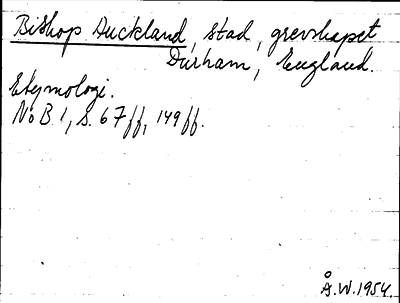 Bishop Auckland, stad, grevskapet
Durham, England.
Etymologi.
NoB 1, s. 67 ff, 149 ff.
Å.W. 1954.